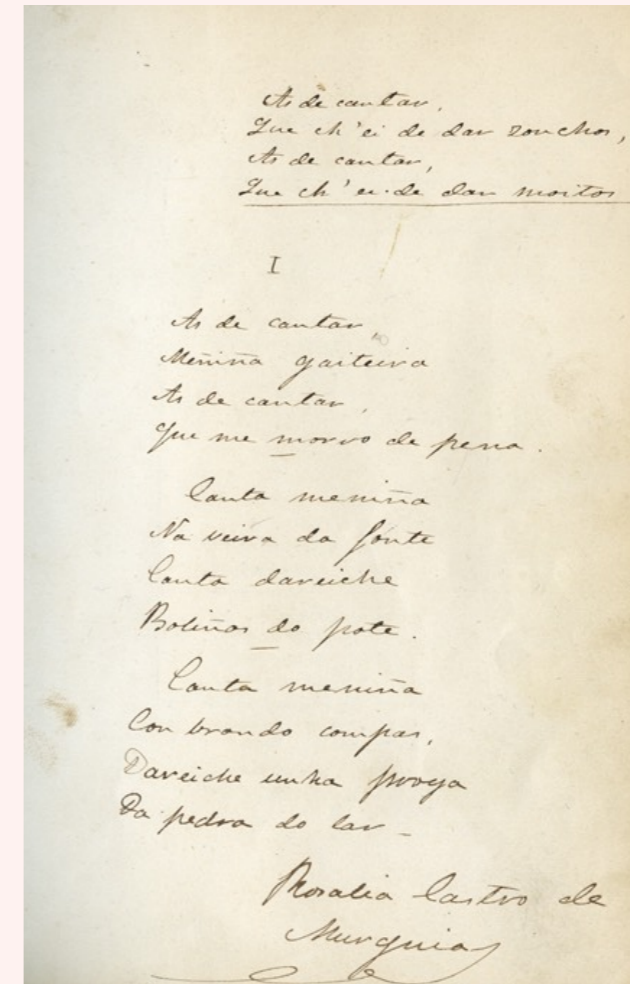 As de cantar,
Que ch'ei de dar zonchos,
As de cantar,
Que ch'ei de dar moitos
I
As de cantar,
Meniña gaiteira
As de cantar,
Que me morro de pena.
Canta meniña
Na veira da fonte
Canta dareiche
Boliños do pote.
Canta meniña
Con brando compas,
Dareiche unha proya
Da pedra do lar
Rosalia Castro de
Murguia